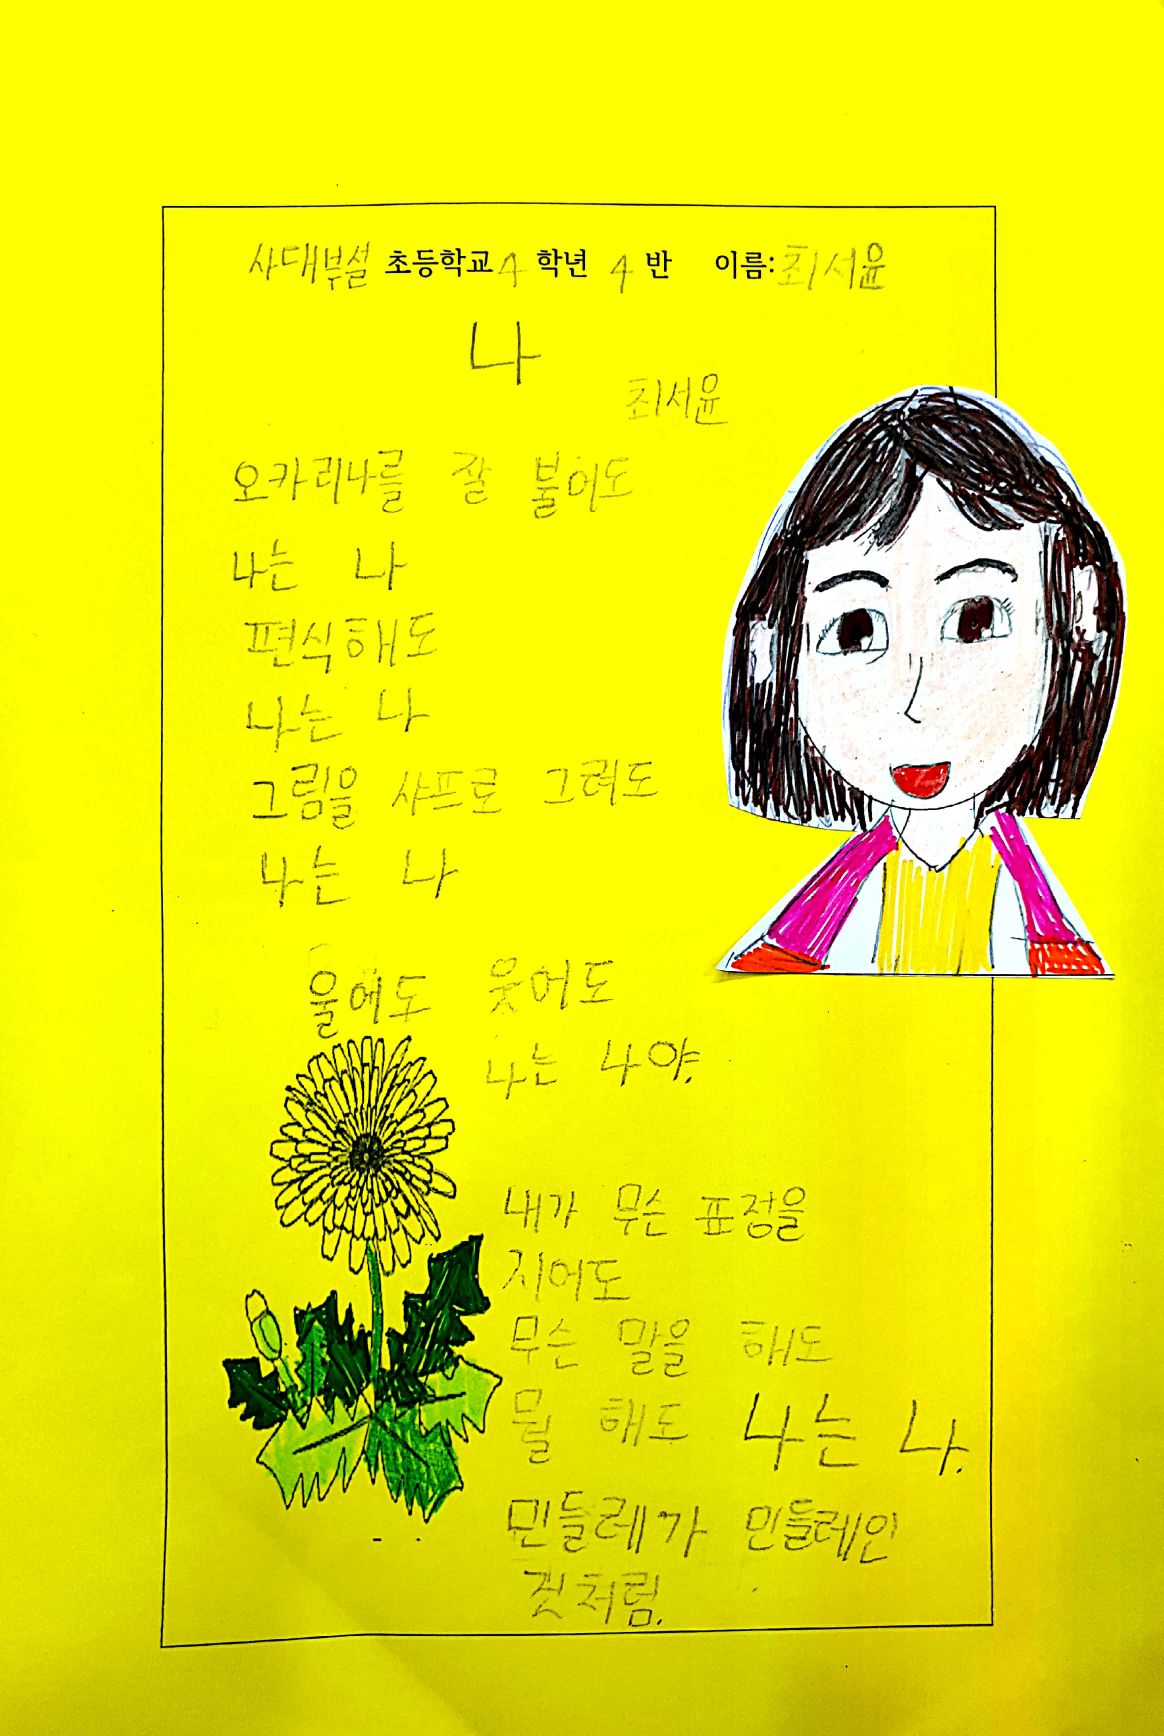 사대부설 초등학교 4 학년 4 반 이름: 최서윤
나
최서윤
오카리나를 잘 불어도
나는 나
편식해도
나는 나
그림을 샤프로 그려도
나는 나
울에도 웃어도
나는 나야.
내가 무슨 표정을
지어도
무슨 말을 해도
뭘 해도 나는 나.
민들레가 민들레인
것처럼.